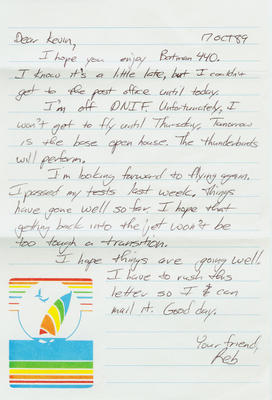 Dear Kevin, 17 OCT 89
I hope you enjoy Batman 440.
I know it's a little late, but I couldn't
get to the post office until today.
I'm off DNIF. Unfortunately, I
won't get to fly until Thursday. Tomorrow
is the base open house. The thunderbirds
will perform.
I'm looking forward to flying again.
I passed my tests last week. Things
have gone well so far. I hope that
getting back into the jet won't be
too tough a transition.
I hope things are going well.
I have to rush this
letter so I can
mail it. Good day.
Your friend,